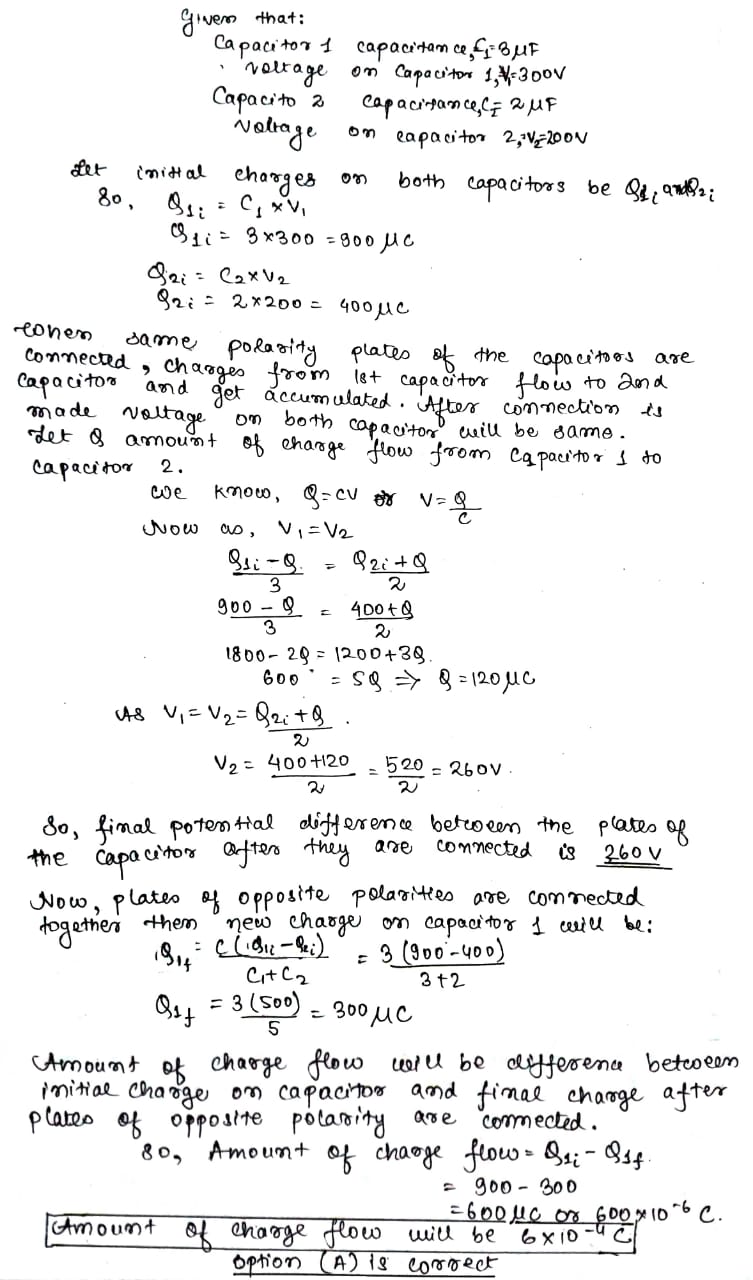 Given that:
Capacitor 1 capacitance, C₁=3μF
voltage on Capacitor 1, V₁=300V
Capacito 2 capacitance, C₂= 2μF
Voltage on capacitor 2, V₂=200V
Let initial charges on both capacitors be Q1i and Q2i
So, Q1i = C₁ × V₁
Q1i = 3×300 = 900 μC
Q2i = C₂×V₂
Q2i = 2×200 = 400μC
When same polarity plates of the capacitors are
connected, charges from 1st capacitor flow to 2nd
capacitor and get accumulated. After connection is
made voltage on both capacitor will be same.
Let Q amount of charge flow from Capacitor 1 to
capacitor 2.
We know, Q=CV or V= Q/C
Now as, V₁=V₂
(Q1i - Q)/3 = (Q2i + Q)/2
(900 - Q)/3 = (400+Q)/2
1800 - 2Q = 1200+3Q.
600 = 5Q ⇒ Q = 120μC
As V₁=V₂= (Q2i + Q)/2 .
V₂ = (400+120)/2 = 520/2 = 260V.
So, final potential difference between the plates of
the capacitor after they are connected is 260V
Now, plates of opposite polarities are connected
together then new charge on capacitor 1 will be:
Q1f = C(Q1i - Q2i)/(C₁+C₂) = 3(900-400)/(3+2)
Q1f = 3(500)/5 = 300μC
Amount of charge flow will be difference between
initial charge on capacitor and final charge after
plates of opposite polarity are connected.
So, Amount of charge flow = Q1i - Q1f.
= 900 - 300
=600μC or 600×10⁻⁶ C.
Amount of charge flow will be 6×10⁻⁴ C
option (A) is correct